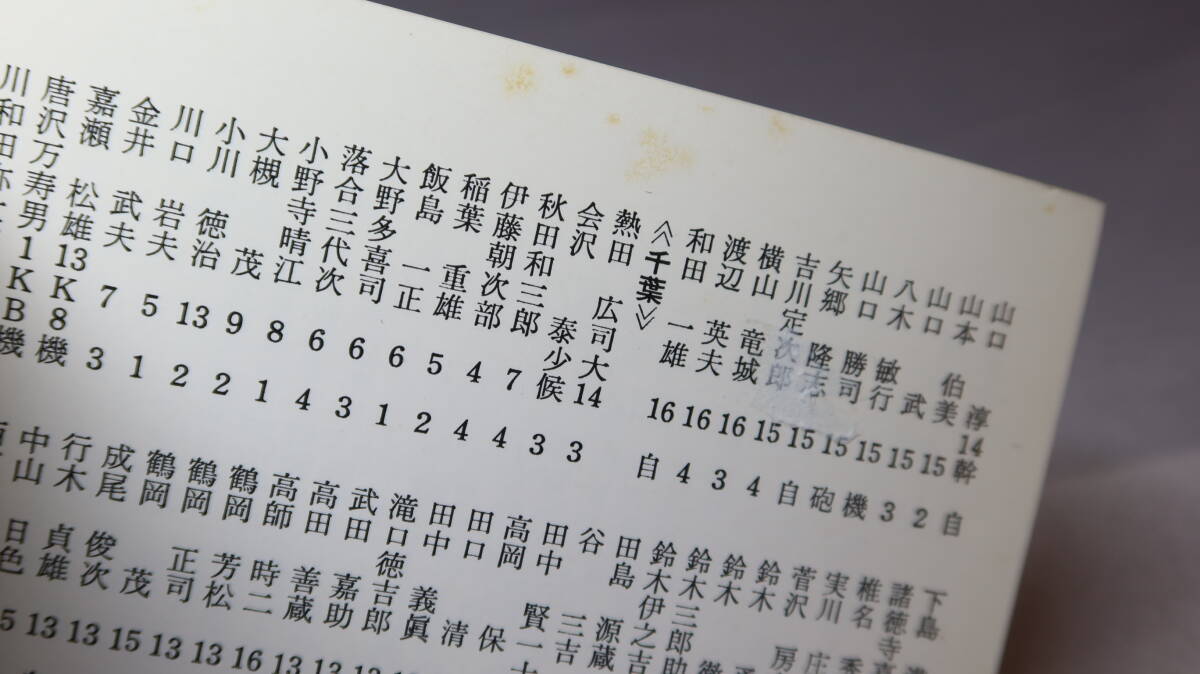 山口 淳14幹 自
山本 伯美 15 2
山口 武 15 3
八木 敏行 15 機
山口 勝司 15 砲
矢郷 隆志 15 自
吉川定次郎 15 4
横山 竜城 16 3
渡辺 英夫 16 4
和田 一雄 16 自
《千葉》
熱田 広司大14 3
会沢 泰少候 3
秋田和三郎 7 4
伊藤朝次部 4 4
稲葉 重雄 5 2
飯島 一正 6 1
大野多喜司 6 3
落合三代次 6 4
小野寺晴江 8 1
大槻 茂 9 2
小川 徳治 13 2
川口 岩夫 5 1
金井 武夫 7 3
嘉瀬 松雄 13K8 機
唐沢万寿男 1KB 機
川和田
下島
諸徳寺
椎名
実川 庄
菅沢 房
鈴木
鈴木
鈴木三郎助
鈴木伊之吉
田島 源蔵
谷 三吉
田中 賢一
高岡 保
田口 清
田中 義眞
滝口徳吉郎
武田 嘉助 13
高田 善蔵 13
高師 時二 16
鶴岡 芳松 13
鶴岡 正司 13
鶴岡 茂 15
成尾 俊次 13
行木 貞雄 13
中山